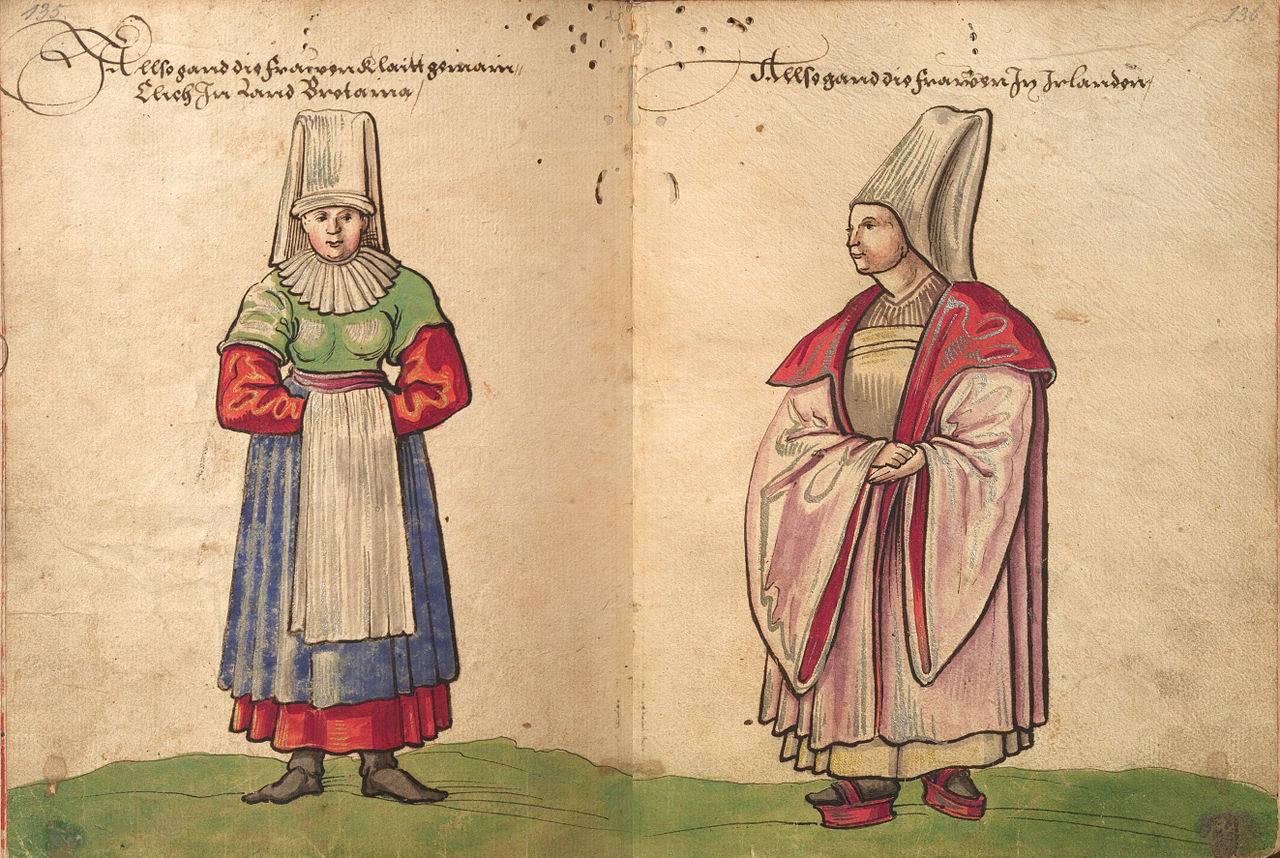 135
Allso gand die frawen Klaitt gemain
Clich In Land Bretania
136
Allso gand die frawen In Irlanden